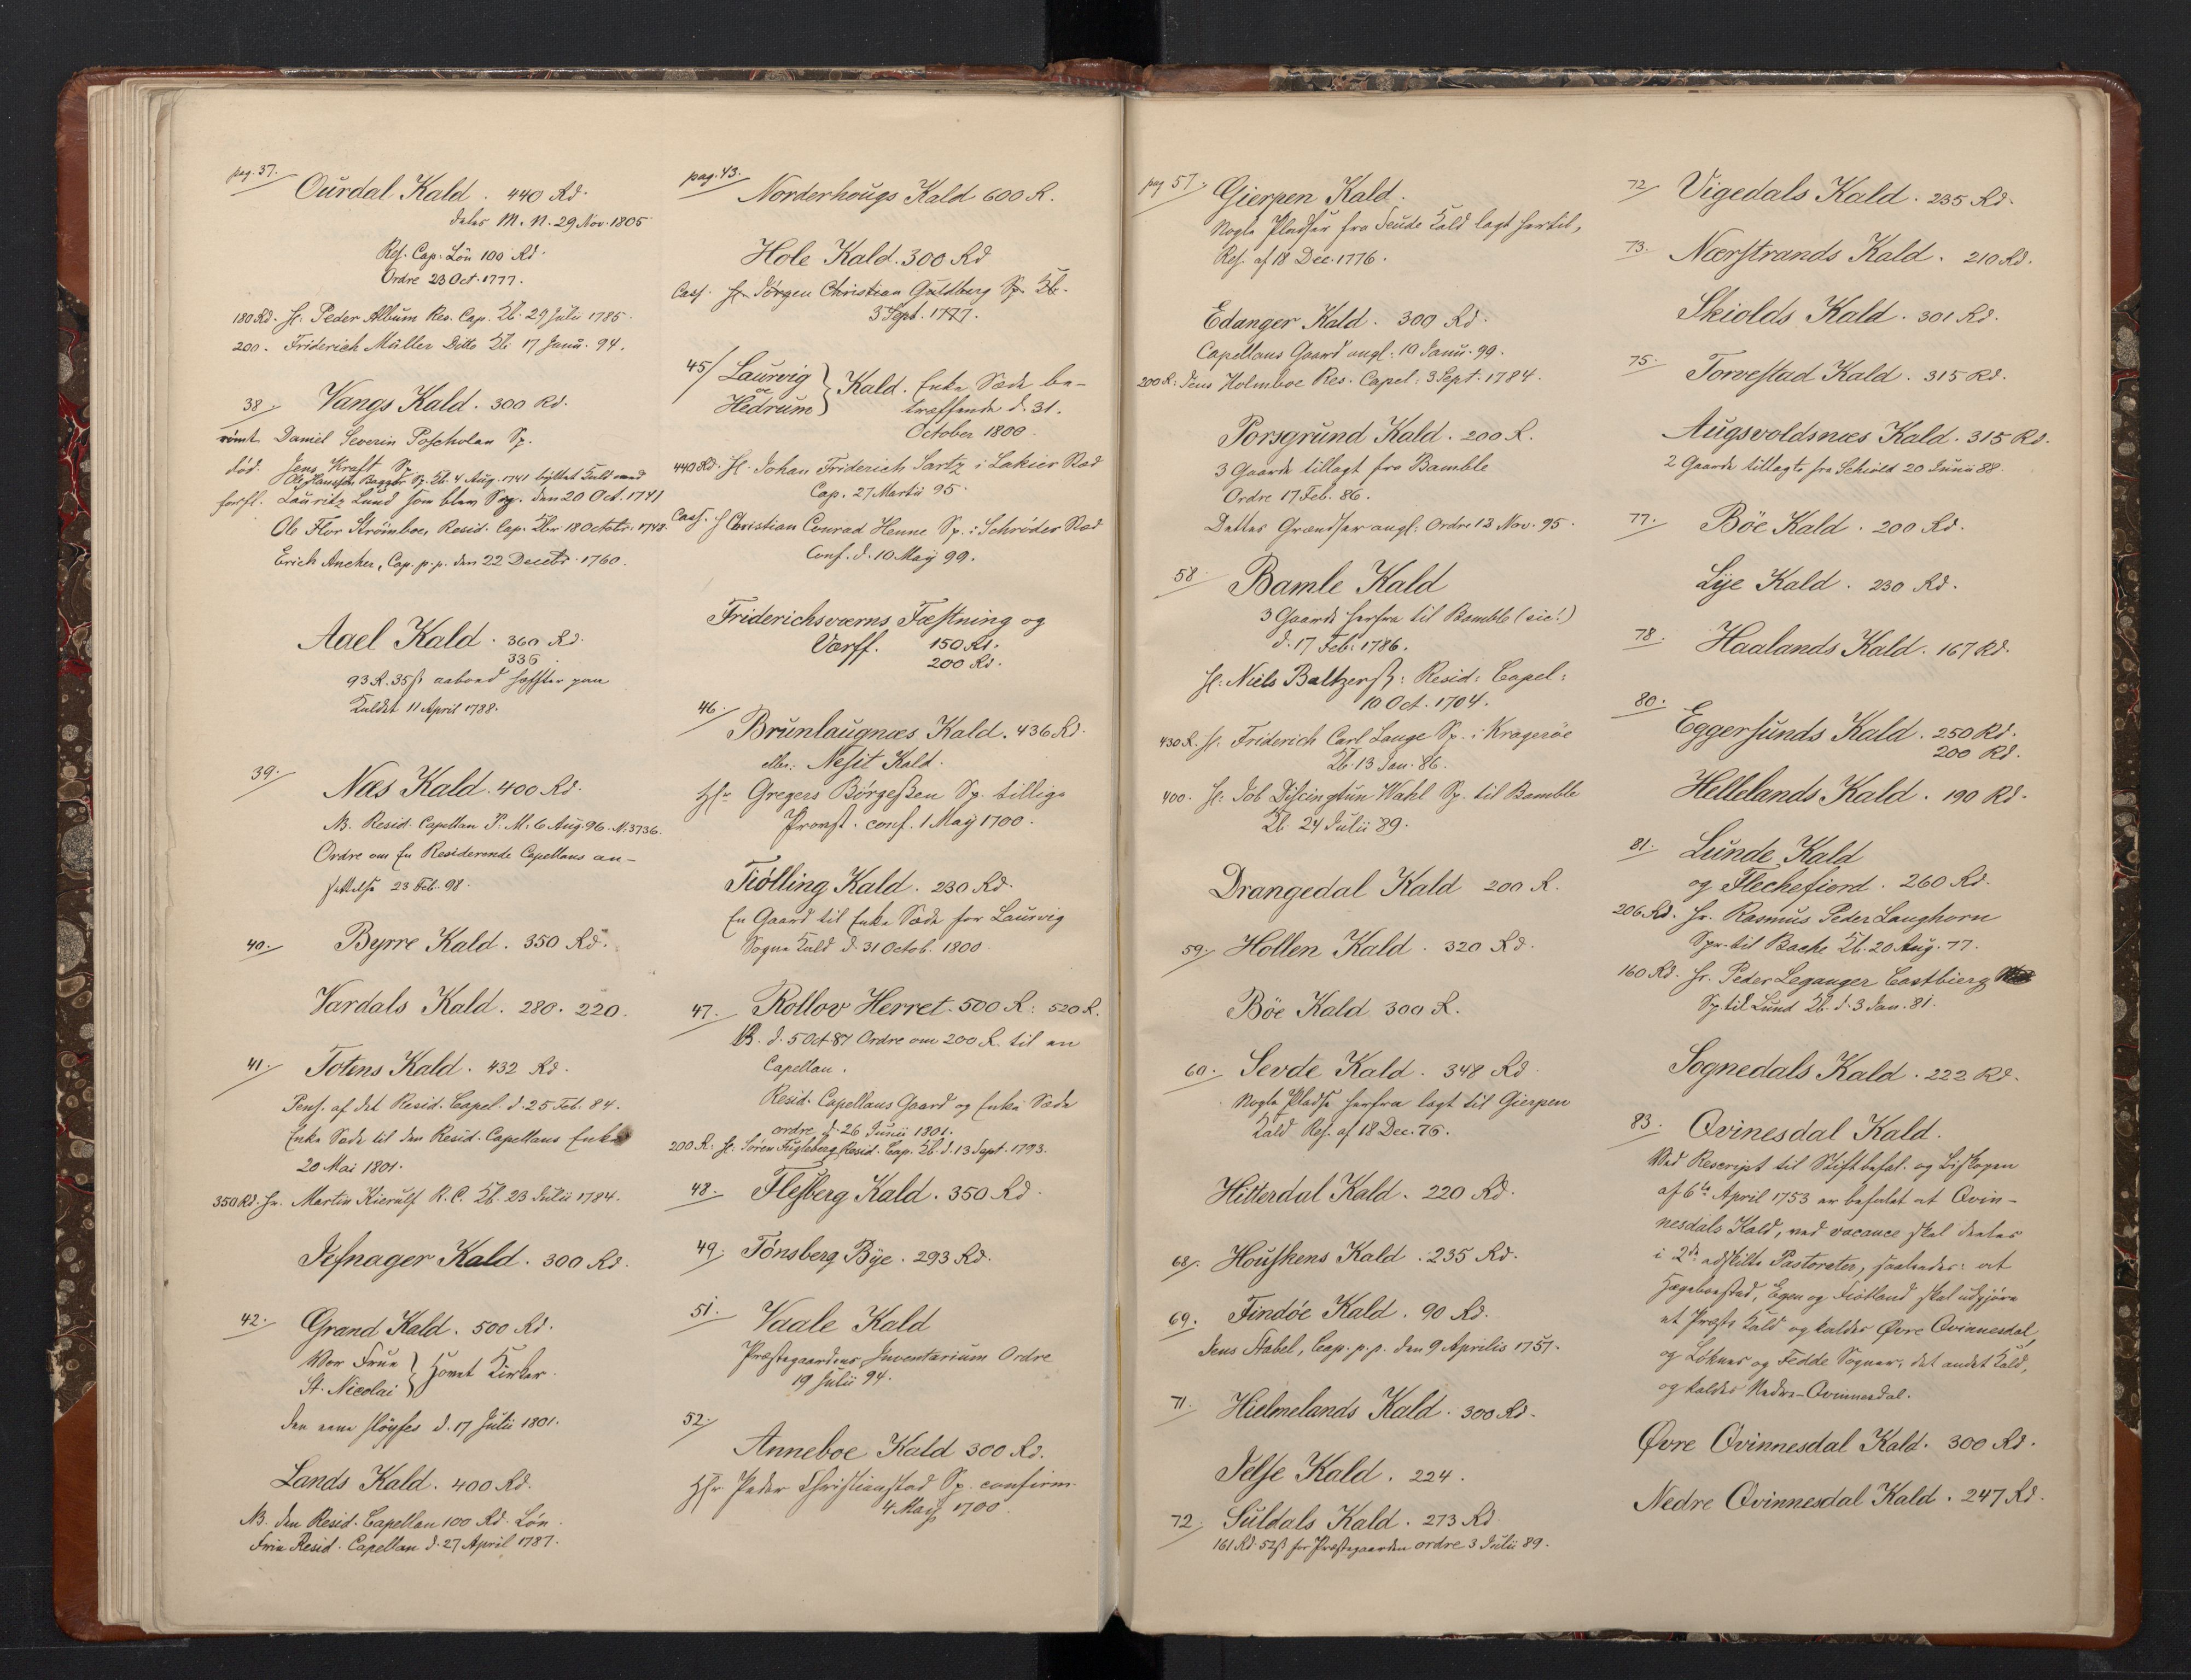 pag. 37.
Ourdal Kald. 440 Rd.
deles M. N. 29 Nov. 1805
Res. Cap. Lön 100 Rd.
Ordre 23 Oct. 1777.
180 Rd. Hr. Peder Album Res. Cap. Kb. 29 Julii 1785.
200. Friderich Müller Ditto Kb. 17 Janu. 94.
38 Vangs Kald. 300 Rd.
römt Daniel Severin Poscholan Sp.
död. Jens Kraft Sp.
Ole Hansson Bagger Sp. Kb. 4 Aug. 1741 byttet Kald med
forfl. Lauritz Lund som blev Sog. den 20 Oct. 1741
Ob Flor Strömboe, Resid. Cap. Kbr. 18 Octobr. 1748.
Erich Ancher, Cap. p. p. den 22 Decebr. 1760.
Aael Kald. 360 Rd.
336.
93 R. 35 ß aabod hæfter paa
Kaldet 11 April 1788.
39. Næs Kald. 400 Rd.
NB. Resid. Capellan P. M. 6 Aug. 96. N. 3736.
Ordre om En Residerende Capellans an-
settelse 23 Feb. 98.
40. Byrre Kald. 350 Rd.
Vardals Kald. 280. 220.
41. Totens Kald. 432 Rd.
Pens. af det Resid. Capel. d. 25 Feb. 84.
Enke Sæde til den Resid. Capellans Enke
20 Mai 1801.
350 Rd. Hr. Martin Kierulf R. C. Kb. 23 Julii 1784.
Jefnager Kald. 300 Rd.
42. Grand Kald. 500 Rd.
Vor Frue } Hovet Kirker.
St. Nicolai
den eene sløyfes d. 17 Julii 1801.
Lands Kald. 400 Rd.
NB. den Resid. Capellan 100 Rd. Lön.
Frin Resid. Capellan d. 27 April 1787.
pag. 43.
Norderhougs Kald 600 R.
Hole Kald. 300 Rd
Cass. Hr. Jörgen Christian Guldberg Sp. Kb.
3 Sept. 1777.
45/ Laurvig
oc } Kald. Enke Sæde be-
Hedrum træffende d. 31.
October 1800.
440 Rd. Hr. Johan Friderich Sartz i Lakier Sted
Cap. 27 Martii 95.
Cass. H Christian Conrad Henne Sp. i Schröder Sted
Conf. d. 10 Maij 99.
Friderichsværns Fæstning og
Værff. 150 Rd.
200 Rd.
46. Brunlaugnæs Kald. 436 Rd.
eller: Nesit Kald.
Hr. Gregers Börgesen Sp. tillige
Provst. conf. 1 Maij 1700.
Tiölling Kald. 230 Rd.
En Gaard til Enke Sæde for Laurvig
Sogne Kald d. 31 Octob. 1800.
47. Rollov Herret. 500 R: 520 R.
NB. d. 5 Oct. 87 Ordre om 200 R. til en
Capellan.
Resid. Capellans Gaard og Enke Sæde
ordre d. 26 Junii 1801.
200 R. Hr. Sören Fugleberg Resid. Cap. Kb. d. 13 Sept. 1793.
48. Flesberg Kald. 350 Rd.
49. Tönsberg Bye. 293 Rd.
51. Vaale Kald
Præstegaardens Inventarium Ordre
19 Julii 94.
52. Anneboe Kald 300 Rd.
Hr Peder Christianstad Sp. confirm.
4 Maij 1700
pag 57. Gierpen Kald.
Nogle Pladser fra Seude Kald lagt hertil,
Res. af 18 Dec. 1776.
Edanger Kald. 300 Rd.
Capellans Gaard angl: 10 Janu. 99.
200 R. Jens Holmboe Res. Capel: 3 Sept. 1784.
Porsgrund Kald. 200 R.
3 Gaarde tillagt fra Bamble
Ordre 17 Feb. 86.
Dettes Grændser angl: Ordre 13 Nov. 95.
58 Bamle Kald
3 Gaarde herfra til Bamble (sic!)
d. 17 Feb. 1786.
Hr. Niels Baltzerss: Resid: Capel:
10 Oct. 1704.
430 R. Hr. Friderich Carl Lange Sp. i Krageröe
Kb. 13 Jan. 86.
400. Hr. Job Discingtun Wahl Sp. til Bamble
Kb. 24 Julii 89.
Drangedal Kald 200 R.
59. Hollen Kald. 320 Rd.
Böe Kald 300 R.
60. Sevde Kald. 348 Rd.
Nogle Pladse herfra lagt til Gierpen
Kald Res. af 18 Dec. 76.
Hitterdal Kald. 220 Rd.
68. Houskens Kald. 235 Rd.
69. Findöe Kald. 90 Rd.
Jens Stabel, Cap. p. p. den 9 Aprilis 1751.
71. Hielmelands Kald. 300 Rd.
Jelse Kald. 224.
72. Suldals Kald. 273 Rd
161 Rd. 52 ß for Præstegaarden ordre 3 Julii 89.
72 Vigedals Kald. 235 Rd.
73. Nærstrands Kald. 210 Rd.
Skiolds Kald. 301 Rd.
75. Torvestad Kald. 315 Rd.
Augsvoldsnæs Kald. 315 Rd.
2 Gaarde tillagte fra Schiöld 20 Junii 88.
77. Böe Kald. 200 Rd.
Lye Kald. 230 Rd.
78. Haalands Kald. 167 Rd.
80. Eggersunds Kald. 250 Rd.
200 Rd.
Hellelands Kald. 190 Rd.
81. Lunde Kald
og Flechefiord. 260 Rd.
206 Rd. Hr. Rasmus Peder Langhorn
Spr. til Bache Kb. 20 Aug. 77.
160 Rd. Hr. Peder Leganger Castbierg
Sp. til Lund Kb. d. 3 Jan. 81.
Sognedals Kald. 222 Rd.
83. Qvinesdal Kald.
Ved Rescript til Stiftbefal. og Biskopen
af 6te April 1753 er befalet at Qvin-
nesdals Kald, ved vacance skal deeles
i 2de adskilte Pastorater, saaledes: at
Hægebostad, Egen og Fiotland skal udgjöre
et Præste Kald og kaldes Øvre Qvinnesdal,
og Loknes og Fedde Sogner, det andet Kald,
og kaldes Nedre-Qvinnesdal.
Øvre Qvinnesdal Kald. 300 Rd.
Nedre Qvinnesdal Kald. 247 Rd.